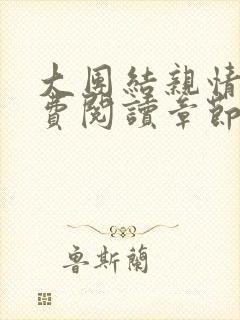 大團結親情
費閱讀章節
魯斯蘭